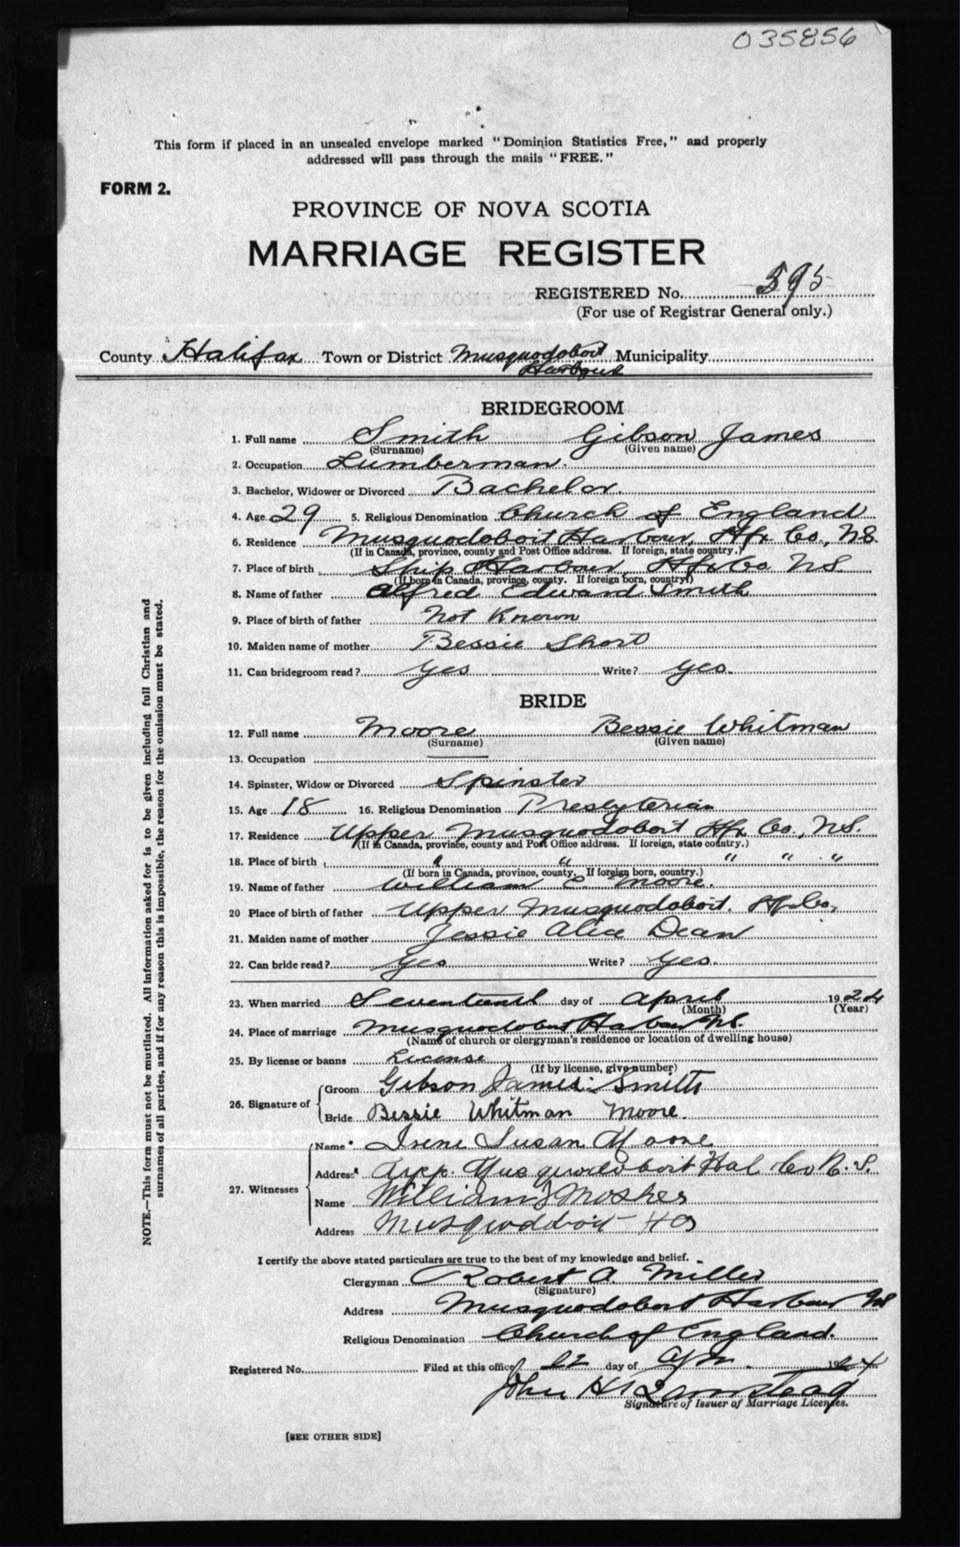 035856
This form if placed in an unsealed envelope marked "Dominion Statistics Free," and properly
addressed will pass through the mails "FREE."
FORM 2.
PROVINCE OF NOVA SCOTIA
MARRIAGE REGISTER
REGISTERED No. 595
(For use of Registrar General only.)
County Halifax Town or District Musquodoboit Harbour Municipality
BRIDEGROOM
1. Full name Smith Gibson James
(Surname) (Given name)
2. Occupation Lumberman.
3. Bachelor, Widower or Divorced Bachelor.
4. Age 29 5. Religious Denomination Church of England
6. Residence Musquodoboit Harbour, Hfx Co., N.S.
(If in Canada, province, county and Post Office address. If foreign, state country.)
7. Place of birth Ship Harbour, Hfx Co N S
(If born in Canada, province, county. If foreign born, country)
8. Name of father Alfred Edward Smith
9. Place of birth of father Not Known
10. Maiden name of mother Bessie Short
11. Can bridegroom read? Yes Write? Yes.
BRIDE
12. Full name Moore Bessie Whitman
(Surname) (Given name)
13. Occupation
14. Spinster, Widow or Divorced Spinster
15. Age 18 16. Religious Denomination Presbyterian
17. Residence Upper Musquodoboit Hfx Co., N.S.
(If in Canada, province, county and Post Office address. If foreign, state country.)
18. Place of birth " " " " "
(If born in Canada, province, county. If foreign born, country.)
19. Name of father William C. Moore.
20 Place of birth of father Upper Musquodoboit, Hfx Co,
21. Maiden name of mother Jessie Alice Dean
22. Can bride read? Yes Write? Yes.
23. When married Seventeenth day of April 1924
(Month) (Year)
24. Place of marriage Musquodoboit Harbour N.S.
(Name of church or clergyman's residence or location of dwelling house)
25. By license or banns License
(If by license, give number)
26. Signature of Groom Gibson James Smith
Bride Bessie Whitman Moore.
27. Witnesses Name Irene Susan Moore
Address Upp. Musquodoboit Hal Co N.S.
Name William Mosher
Address Musquodoboit
I certify the above stated particulars are true to the best of my knowledge and belief.
Clergyman Robert A. Miller
(Signature)
Address Musquodoboit Harbour NS
Religious Denomination Church of England.
Registered No. Filed at this office 22 day of Apr. 1924
John H
Signature of Issuer of Marriage Licenses.
[SEE OTHER SIDE]
NOTE.—This form must not be mutilated. All information asked for is to be given including full Christian and
surnames of all parties, and if for any reason this is impossible, the reason for the omission must be stated.